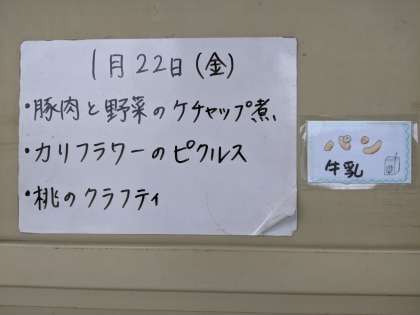 1月22日(金)
・豚肉と野菜のケチャップ煮
・カリフラワーのピクルス
・桃のクラフティ
パン
牛乳